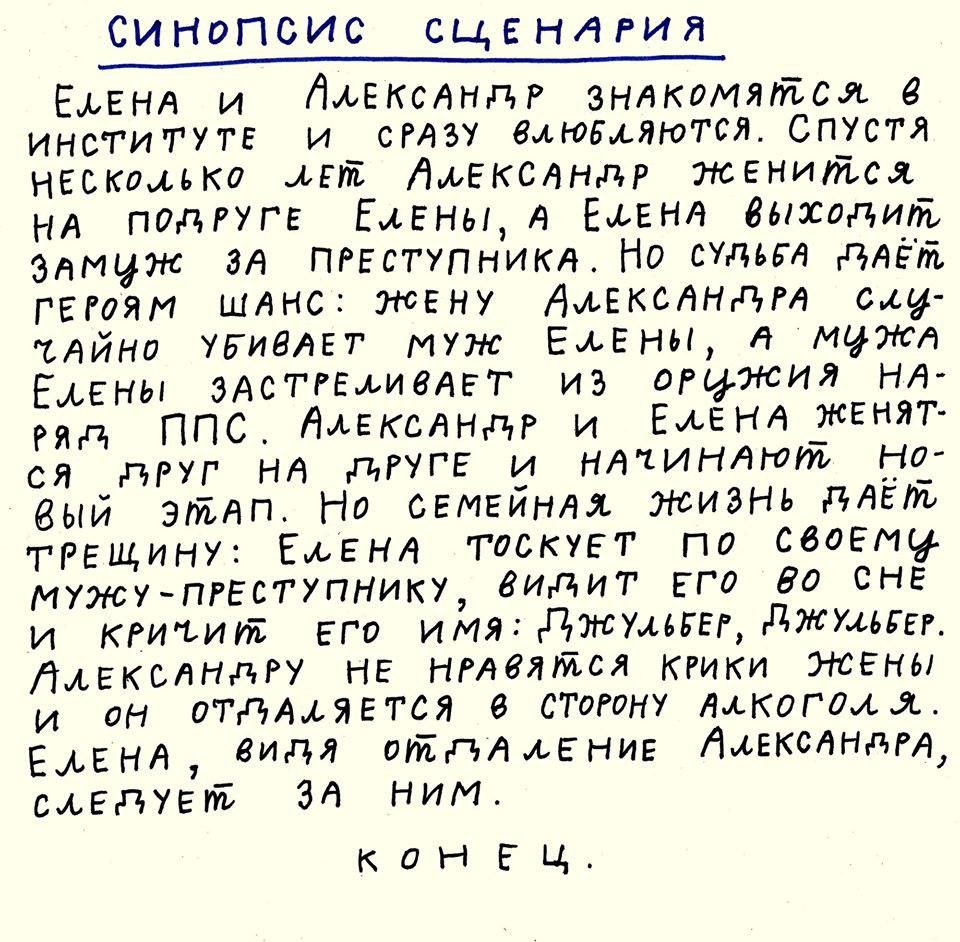 СИНОПСИС СЦЕНАРИЯ
Елена и Александр знакомятся в
институте и сразу влюбляются. Спустя
несколько лет Александр женится
на подруге Елены, а Елена выходит
замуж за преступника. Но судьба даёт
героям шанс: жену Александра слу-
чайно убивает муж Елены, а мужа
Елены застреливает из оружия на-
ряд ППС. Александр и Елена женят-
ся друг на друге и начинают но-
вый этап. Но семейная жизнь даёт
трещину: Елена тоскует по своему
мужу-преступнику, видит его во сне
и кричит его имя: Джульбер, Джульбер.
Александру не нравятся крики жены
и он отдаляется в сторону алкоголя.
Елена, видя отдаление Александра,
следует за ним.
конец.